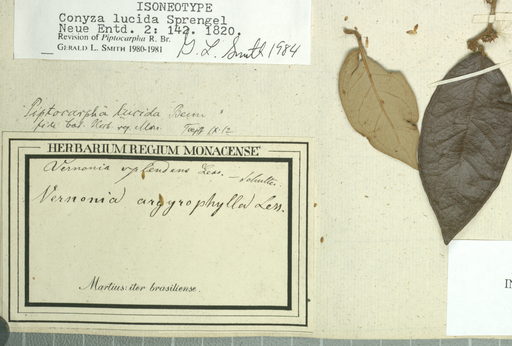 ISONEOTYPE
Conyza lucida Sprengel
Neue Entd. 2: 142. 1820.
Revision of Piptocarpha R. Br.
GERALD L. SMITH 1980-1981 G. L. Smith 1984
"Piptocarpha lucida Benn"
fide Cat. Herb. reg. Mon.
HERBARIUM REGIUM MONACENSE
Vernonia splendens Less. — Schultz.
Vernonia argyrophylla Less.
Martius: iter brasiliense.